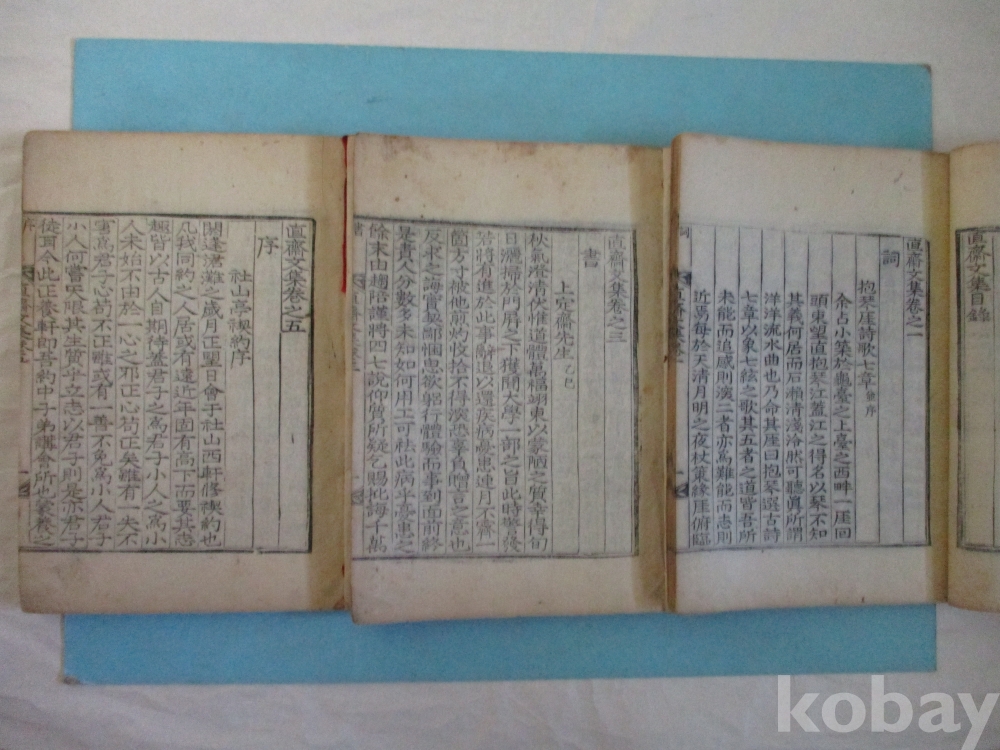 直齋文集目錄
直齋文集卷之一
詞
抱琴崖詩歌七章 并序
余占小築於龜臺之上臺之西畔一崖回
頭東望直抱琴江蓋江之得名以琴不知
其義何居而石瀨淸淺冷然可聽眞所謂
洋洋流水曲也乃命其崖曰抱琴選古詩
七章以象七絃之歌其五者之道皆吾所
未能而追感則演二者亦爲難能而志則
近焉每於天淸月明之夜杖策緣崖俯臨
直齋文集卷之三
書
上定齋先生 乙巳
秋氣澄淸伏惟道體萬福翊東以蒙陋之質幸得旬
日灑掃於門屛之下獲聞大學一部之旨此時警發
若將有進於此事辭退以還疾病憂患連月不霽一
箇方寸被他煎灼收拾不得深恐辜負贈言之意也
反求之誨實是鄙悃思欲躬行體驗而事到面前終
是責人分數多未知如何用工可祛此病乎憂患之
餘末由趨陪謹將四七說仰質所疑乞賜批誨千萬
直齋文集卷之五
序
社山亭稧約序
閼逢涒灘之歲月正望日會于社山西軒修稧約也
凡我同約之人居或有遠近年固有高下而要其志
趣皆以古人自期待蓋君子之爲君子小人之爲小
人未始不由於一心之邪正心苟正矣雖有一失不
害爲君子心苟不正雖或有一善不免爲小人君子
小人何嘗天限其生質乎立志以君子則是亦君子
徒耳今此正養軒卽吾約中子弟講會所也
kobay